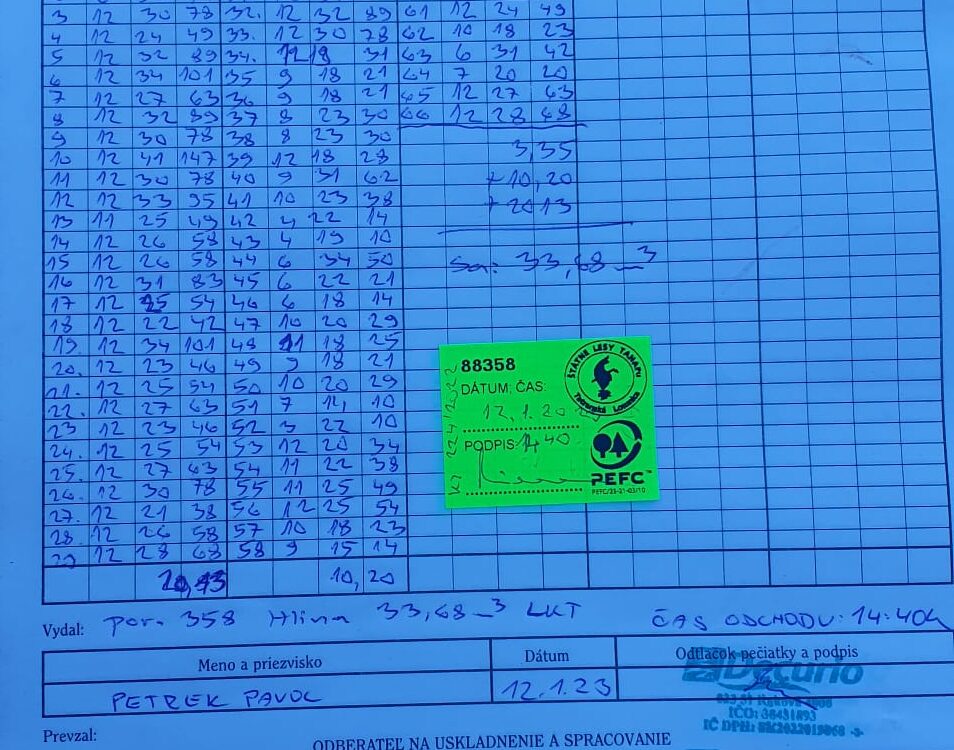 3 12 30 78 32. 12 32 89 61 12 24 49
4 12 24 49 33. 12 30 78 62 10 18 23
5 12 32 89 34. 12 19 31 63 6 31 42
6 12 34 101 35 9 18 21 64 7 20 20
7 12 27 63 36 9 18 21 65 12 27 63
8 12 32 89 37 8 23 30 66 12 28 68
9 12 30 78 38 8 23 30
3,35
10 12 41 147 39 12 18 28
11 12 30 78 40 9 31 62
+ 10,20
12 12 33 95 41 10 23 38
+ 2013
13 11 25 49 42 4 22 14
14 12 26 58 43 4 19 10
15 12 26 58 44 6 34 50
Sa: 33,68 m3
16 12 31 83 45 6 22 21
17 12 25 54 46 6 18 14
18 12 22 42 47 10 20 29
19. 12 34 101 48 11 18 25
20. 12 23 46 49 9 18 21
21. 12 25 54 50 10 20 29
22. 12 27 63 51 7 14 10
23 12 23 46 52 3 22 10
24. 12 25 54 53 12 20 34
25. 12 27 63 54 11 22 38
26. 12 30 78 55 11 25 49
27. 12 21 38 56 12 25 54
28. 12 26 58 57 10 18 23
29 12 28 68 58 9 15 14
20,13 10,20
88358
ŠTÁTNE LESY TANAPU
Tatranská Lomnica
DÁTUM, ČAS:
12.1.20
PODPIS: 14 40
PEFC™
PEFC/23-21-03/10
Vydal: por. 358 Hlina 33,68 m3 LKT ČAS ODCHODU: 14:40h
Meno a priezvisko Dátum Odtlačok pečiatky a podpis
PETREK PAVOL 12.1.23
Decurio
IČO: 36431893
IČ DPH:
Prevzal:
ODBERATEĽ NA USKLADNENIE A SPRACOVANIE